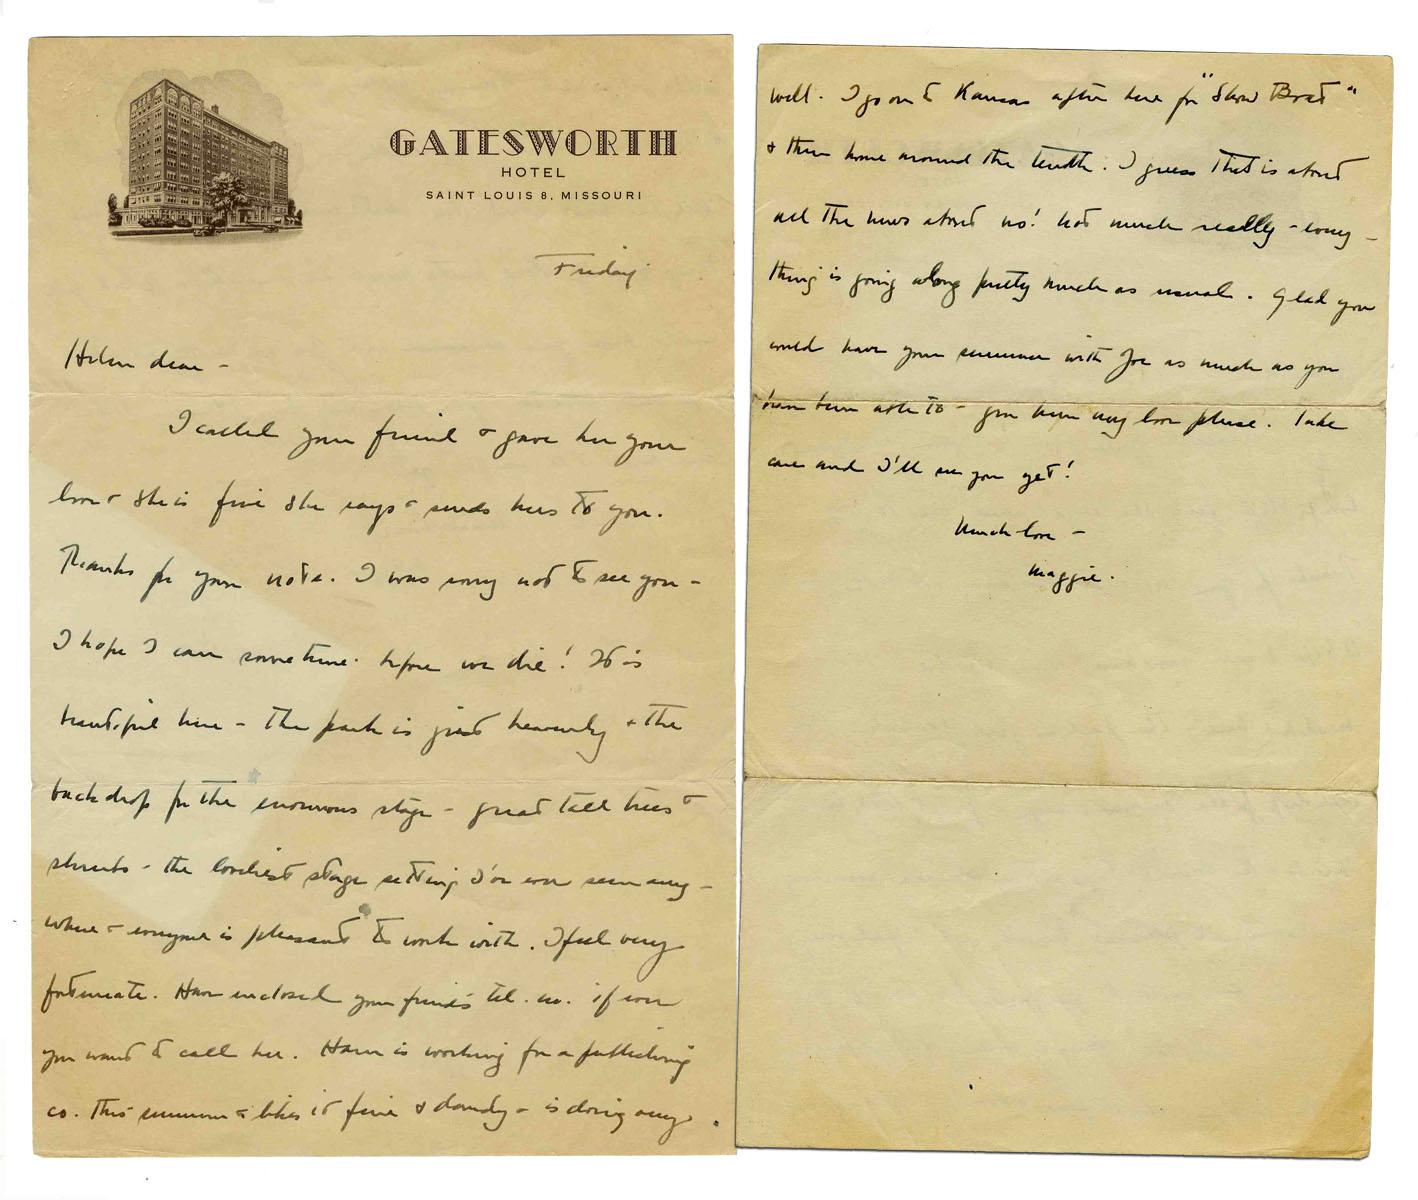 GATESWORTH
HOTEL
SAINT LOUIS 8, MISSOURI
Friday
Helen dear -
I called your friend & gave her your
love & she is fine she says & sends hers to you.
Thanks for your note. I was sorry not to see you -
I hope I can sometime before we die! It is
beautiful here - the park is just heavenly & the
backdrop for the enormous stage - great tall trees &
shrubs - the loveliest stage setting I've ever seen any-
where & everyone is pleasant to work with. I feel very
fortunate. Have enclosed your friend's tel. no. if ever
you want to call her. Ham is working for a publishing
co. this summer & likes it fine & dandy & is doing very
well. I go on to Kansas after here for "Show Boat"
& then home around the tenth. I guess that is about
all the news about us! Not much really - every-
thing is going along pretty much as usual. Glad you
could have your summer with Joe as much as you
have been able to - you have my love please. Take
care and I'll see you yet!
Much love -
Maggie.